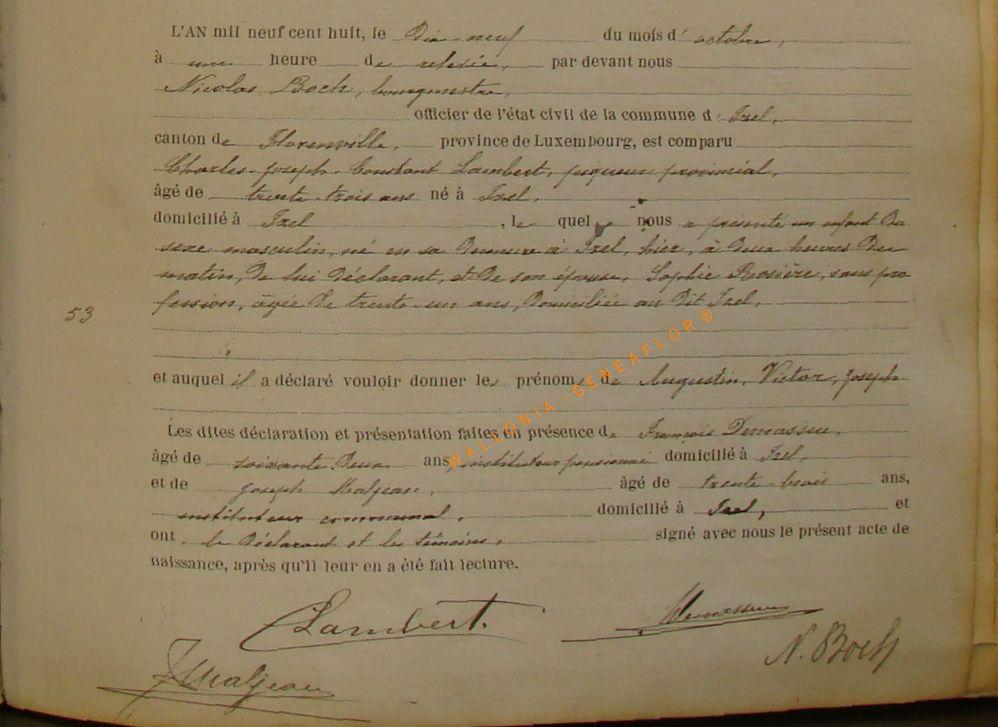 L'AN mil neuf cent huit, le Dix neuf du mois d' octobre,
à une heure de relevée, par devant nous
Nicolas Boch, bourgmestre,
officier de l'état civil de la commune d' Izel,
canton de Florenville, province de Luxembourg, est comparu
Charles-Joseph-Constant Lambert, piqueur provincial,
âgé de trente-trois ans né à Izel,
domicilié à Izel, le quel nous a présenté un enfant du
sexe masculin, né en sa demeure à Izel, hier, à deux heures du
matin, de lui déclarant, et de son épouse, Sophie Rosière, sans pro
fession, âgée de trente un ans, domiciliée au dit Izel,
53
et auquel il a déclaré vouloir donner les prénoms de Augustin, Victor, Joseph
Les dites déclaration et présentation faites en présence de François Demasseu,
âgé de soixante deux ans, instituteur pensionné domicilié à Izel,
et de Joseph Maljean, âgé de trente-trois ans,
instituteur communal, domicilié à Izel, et
ont, le déclarant et les témoins, signé avec nous le présent acte de
naissance, après qu'il leur en a été fait lecture.
Lambert.
N. Boch
J Maljean
WALLONIA-GENEAFLOR®